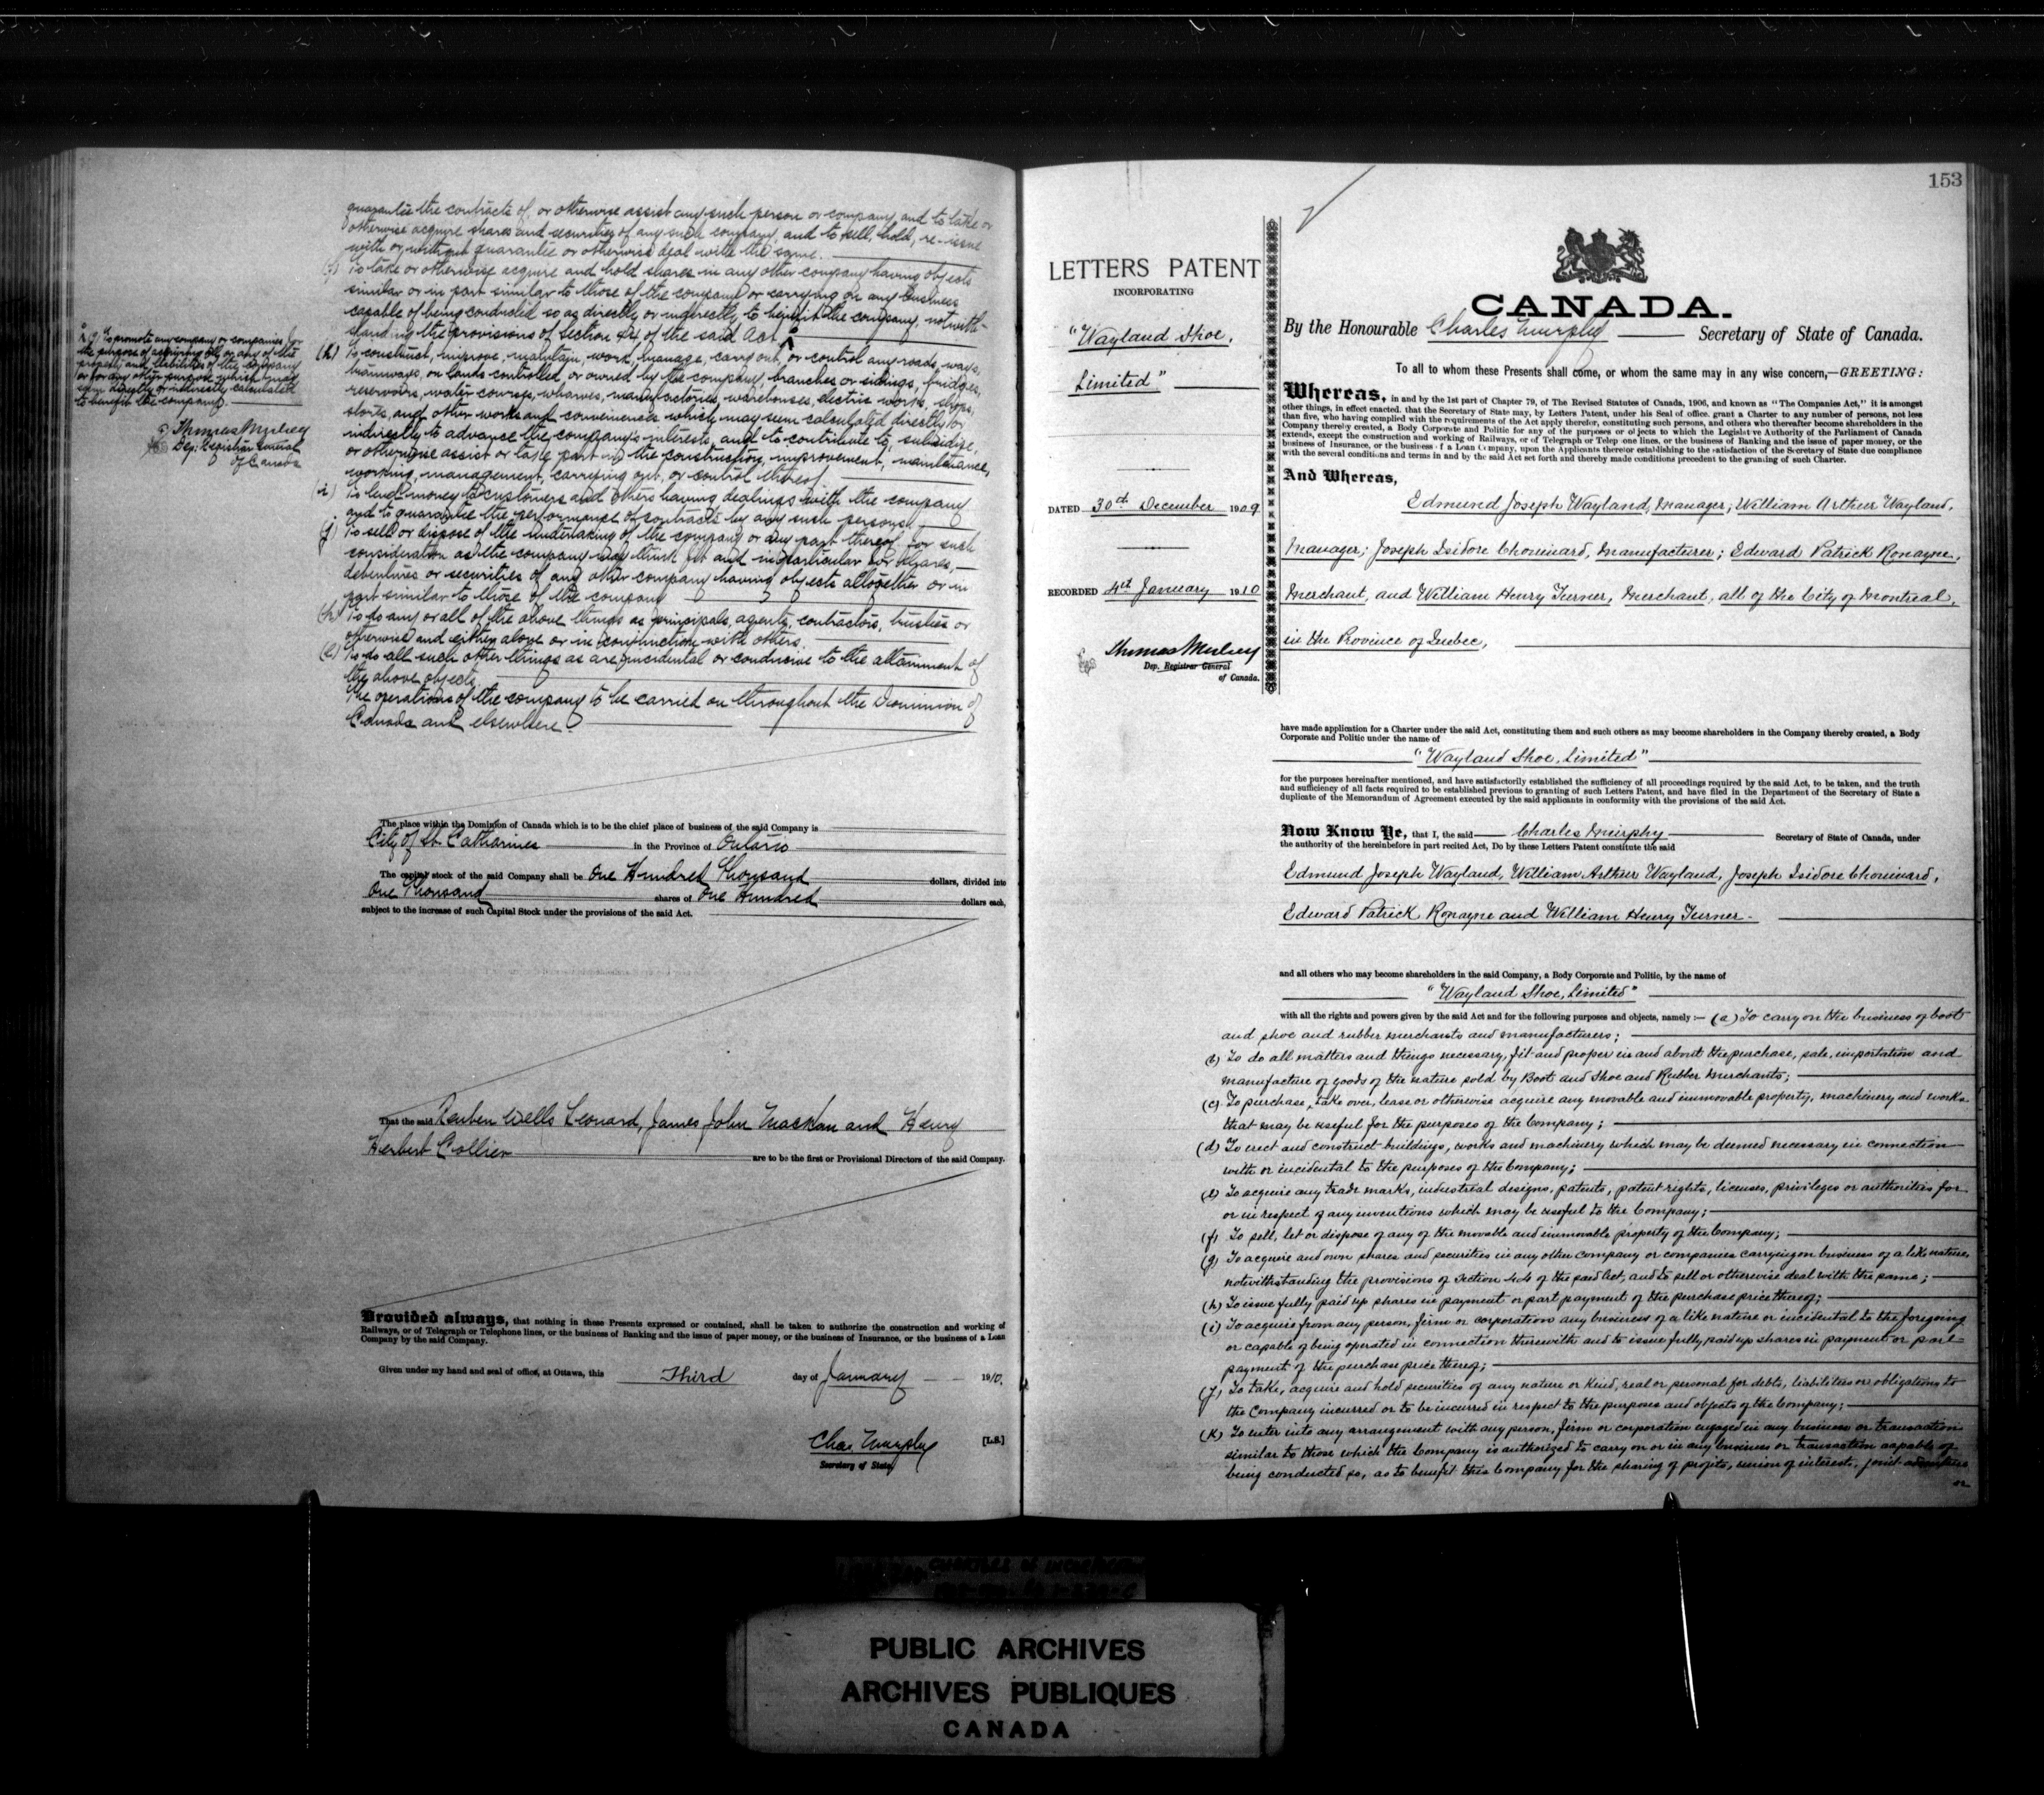 guarantee the contracts of, or otherwise assist any such person or company, and to take or
otherwise acquire shares and securities of any such company, and to sell, hold, re-issue
with or without guarantee or otherwise deal with the same.
(f) To take or otherwise acquire and hold shares in any other company having objects
similar or in part similar to those of the company or carrying on any business
capable of being conducted so as directly or indirectly to benefit the company, notwith-
standing the provisions of Section 44 of the said Act.
"(g) To promote any company or companies for
the purpose of acquiring all or any of the
property and liabilities of the company
or for any other purpose which may
seem directly or indirectly calculated
to benefit the company.
Thomas Mulvey
Dep. Registrar General
of Canada
(h) To construct, improve, maintain, work, manage, carry out, or control any roads, ways,
tramways, on lands controlled or owned by the company, branches or sidings, bridges,
reservoirs, water courses, wharves, manufactories, warehouses, electric works, shops,
stores, and other works and conveniences which may seem calculated directly or
indirectly to advance the company's interests, and to contribute to, subsidise,
or otherwise assist or take part in the construction, improvement, maintenance,
working, management, carrying out, or control thereof
(i) To lend money to customers and others having dealings with the company
and to guarantee the performance of contracts by any such persons.
(j) To sell or dispose of the undertaking of the company or any part thereof for such
consideration as the company may think fit and in particular for shares,
debentures or securities of any other company having objects altogether or in
part similar to those of the company
(k) To do any or all of the above things as principals, agents, contractors, trustees or
otherwise and either alone or in conjunction with others.
(l) To do all such other things as are incidental or conducive to the attainment of
the above objects.
The operations of the company to be carried on throughout the Dominion of
Canada and elsewhere.
The place within the Dominion of Canada which is to be the chief place of business of the said Company is
City of St. Catharines in the Province of Ontario
The capital stock of the said Company shall be One Hundred Thousand dollars, divided into
One Thousand shares of One Hundred dollars each,
subject to the increase of such Capital Stock under the provisions of the said Act.
That the said Reuben Wells Leonard, James John Mackan and Henry
Herbert Collier are to be the first or Provisional Directors of the said Company.
Provided always, that nothing in these Presents expressed or contained, shall be taken to authorize the construction and working of
Railways, or of Telegraph or Telephone lines, or the business of Banking and the issue of paper money, or the business of Insurance, or the business of a Loan
Company by the said Company.
Given under my hand and seal of office, at Ottawa, this Third day of January 1910.
Chas Murphy [L.S.]
Secretary of State
153
LETTERS PATENT
INCORPORATING
"Wayland Shoe,
Limited"
DATED 30th December 1909
RECORDED 4th January 1910
Thomas Mulvey
Dep. Registrar General
of Canada.
CANADA.
By the Honourable Charles Murphy Secretary of State of Canada.
To all to whom these Presents shall come, or whom the same may in any wise concern,—GREETING:
Whereas, in and by the 1st part of Chapter 79, of The Revised Statutes of Canada, 1906, and known as "The Companies Act," it is amongst
other things, in effect enacted, that the Secretary of State may, by Letters Patent, under his Seal of office, grant a Charter to any number of persons, not less
than five, who having complied with the requirements of the Act apply therefor, constituting such persons, and others who thereafter become shareholders in the
Company thereby created, a Body Corporate and Politic for any of the purposes or objects to which the Legislative Authority of the Parliament of Canada
extends, except the construction and working of Railways, or of Telegraph or Telephone lines, or the business of Banking and the issue of paper money, or the
business of Insurance, or the business of a Loan Company, upon the Applicants therefor establishing to the satisfaction of the Secretary of State due compliance
with the several conditions and terms in and by the said Act set forth and thereby made conditions precedent to the granting of such Charter.
And Whereas,
Edmund Joseph Wayland, Manager; William Arthur Wayland,
Manager; Joseph Isidore Chouinard, Manufacturer; Edward Patrick Ronayne,
Merchant, and William Henry Turner, Merchant, all of the City of Montreal,
in the Province of Quebec,
have made application for a Charter under the said Act, constituting them and such others as may become shareholders in the Company thereby created, a Body
Corporate and Politic under the name of
"Wayland Shoe, Limited"
for the purposes hereinafter mentioned, and have satisfactorily established the sufficiency of all proceedings required by the said Act, to be taken, and the truth
and sufficiency of all facts required to be established previous to granting of such Letters Patent, and have filed in the Department of the Secretary of State a
duplicate of the Memorandum of Agreement executed by the said applicants in conformity with the provisions of the said Act.
Now Know Ye, that I, the said Charles Murphy Secretary of State of Canada, under
the authority of the hereinbefore in part recited Act, Do by these Letters Patent constitute the said
Edmund Joseph Wayland, William Arthur Wayland, Joseph Isidore Chouinard,
Edward Patrick Ronayne and William Henry Turner.
and all others who may become shareholders in the said Company, a Body Corporate and Politic, by the name of
"Wayland Shoe, Limited"
with all the rights and powers given by the said Act and for the following purposes and objects, namely :— (a) To carry on the business of boot
and shoe and rubber merchants and manufacturers;
(b) To do all matters and things necessary, fit and proper in and about the purchase, sale, importation and
manufacture of goods of the nature sold by Boot and Shoe and Rubber Merchants;
(c) To purchase, take over, lease or otherwise acquire any movable and immovable property, machinery and works
that may be useful for the purposes of the Company;
(d) To erect and construct buildings, works and machinery which may be deemed necessary in connection
with or incidental to the purposes of the Company;
(e) To acquire any trade marks, industrial designs, patents, patent rights, licenses, privileges or authorities for
or in respect of any inventions which may be useful to the Company;
(f) To sell, let or dispose of any of the movable and immovable property of the Company;
(g) To acquire and own shares and securities in any other company or companies carrying on business of a like nature,
notwithstanding the provisions of Section 44 of the said Act, and to sell or otherwise deal with the same;
(h) To issue fully paid up shares in payment or part payment of the purchase price thereof;
(i) To acquire from any person, firm or corporation any business of a like nature or incidental to the foregoing
or capable of being operated in connection therewith and to issue fully paid up shares in payment or part
payment of the purchase price thereof;
(j) To take, acquire and hold securities of any nature or kind, real or personal for debts, liabilities or obligations to
the Company incurred or to be incurred in respect to the purposes and objects of the Company;
(k) To enter into any arrangement with any person, firm or corporation engaged in any business or transaction
similar to those which the Company is authorized to carry on or in any business or transaction capable of
being conducted so, as to benefit this Company for the sharing of profits, union of interests, joint adventure
or
PUBLIC ARCHIVES
ARCHIVES PUBLIQUES
CANADA